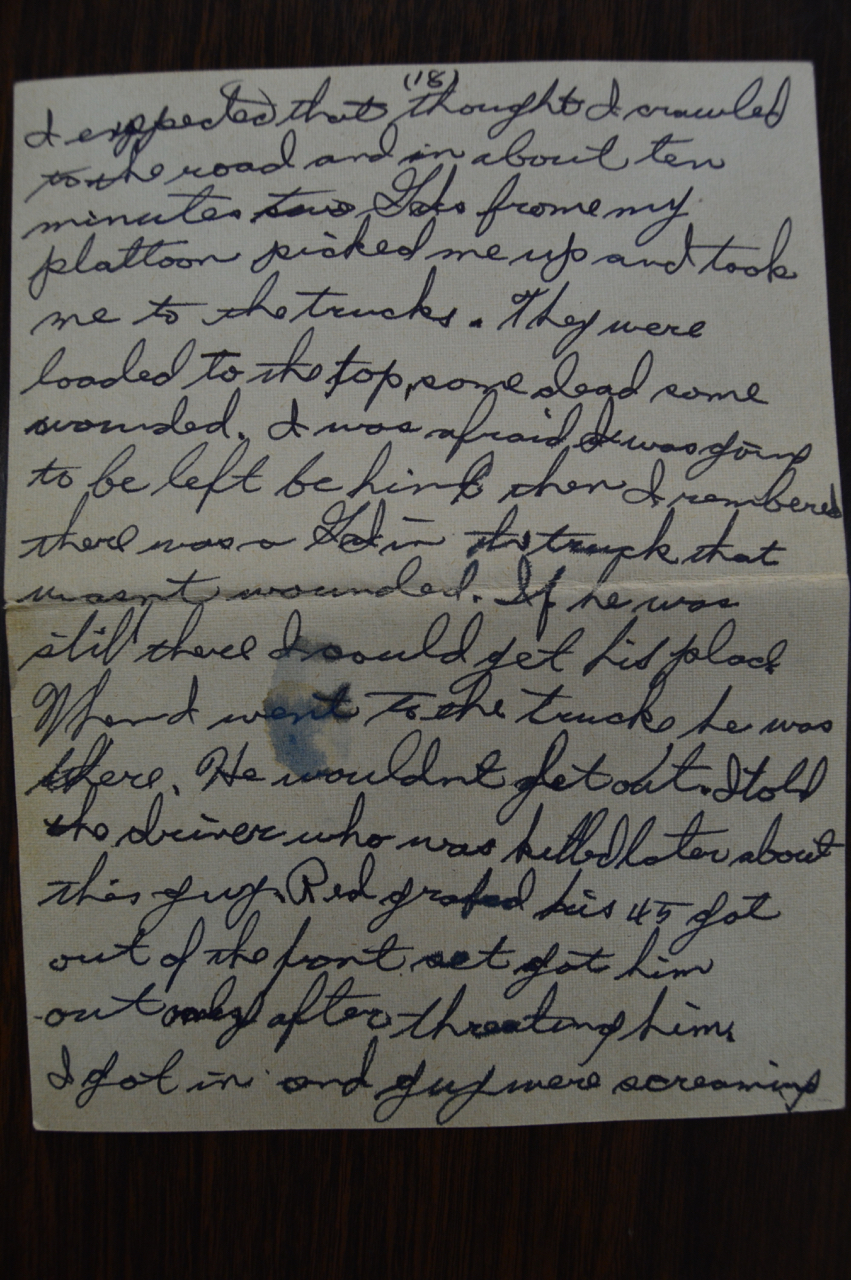 (18)
I exppected that thought I crawled
to the road and in about ten
minutes two GIs frome my
plattoon picked me up and took
me to the trucks. They were
loaded to the top, some dead some
wounded. I was afraid I was going
to be left behind then I rembered
there was a GI in the truck that
wasnt wounded. If he was
still there I could get his place
When I went to the truck, he was
there. He wouldnt get out. I told
the driver who was killed later about
this guy. Red grabed his 45 got
out of the front set got him
out only after threating him.
I got in and guy were screaming